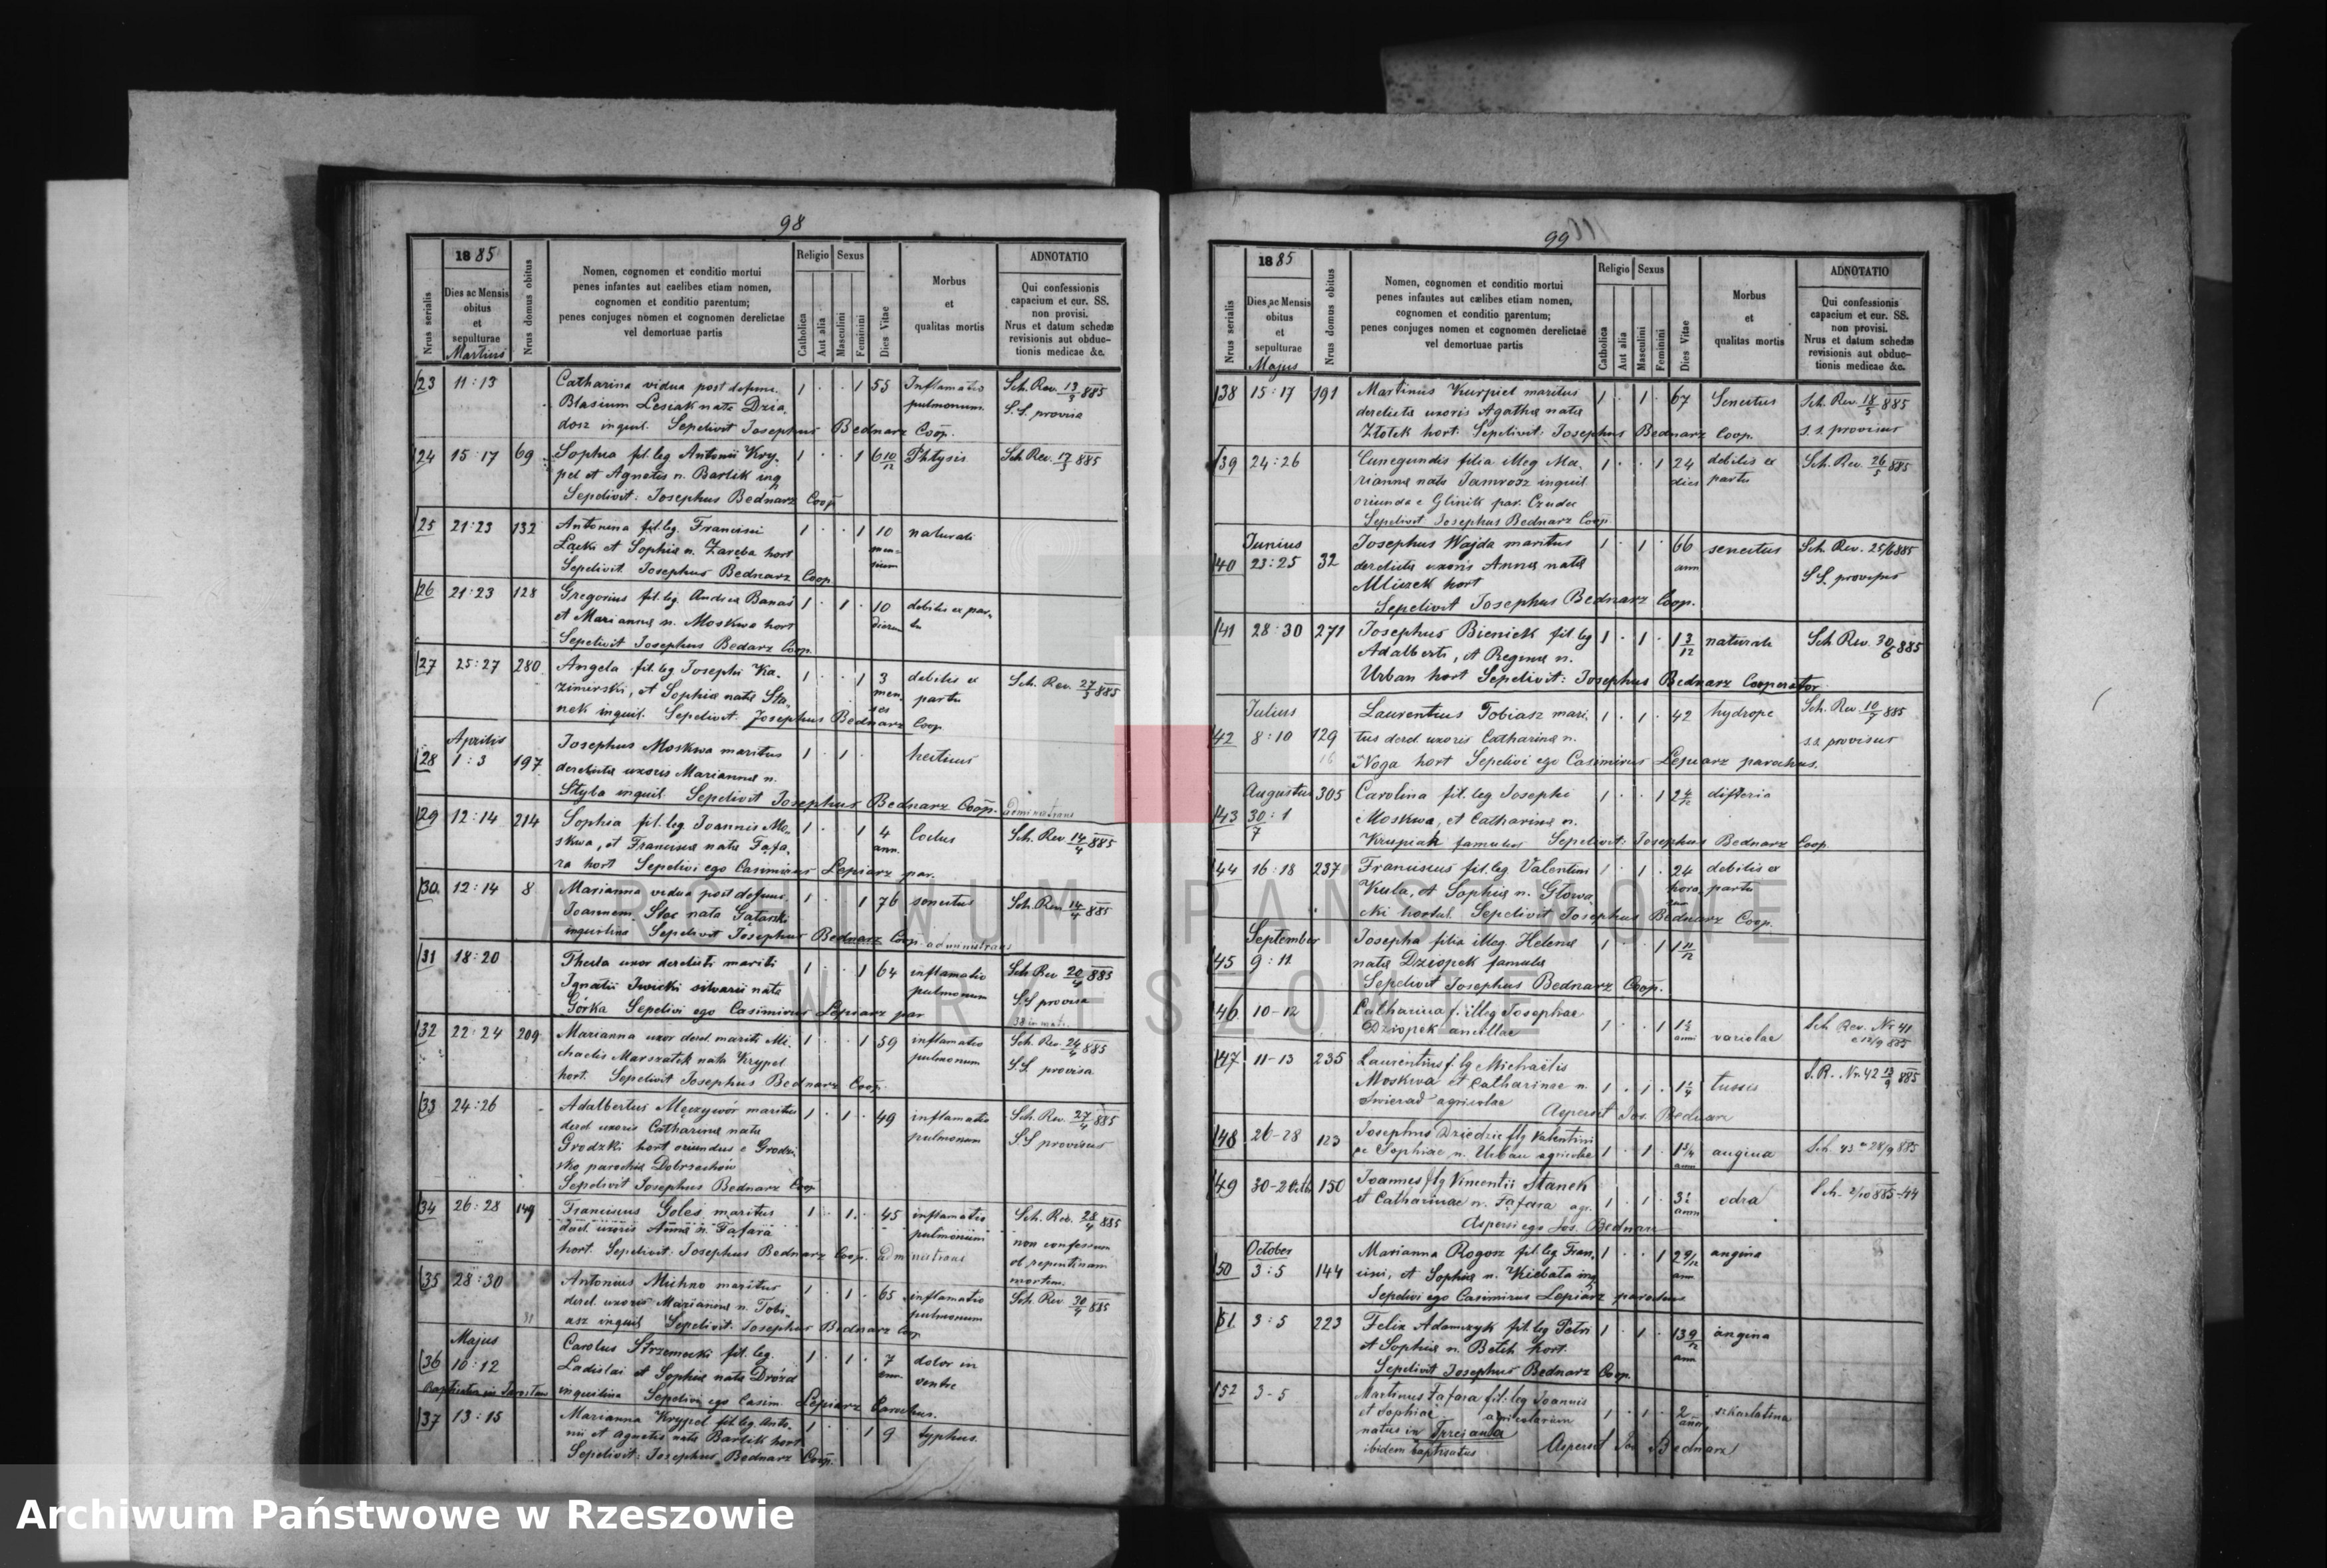 98
1885
Nrus serialis
Dies ac Mensis obitus et sepulturae
Martius
Nrus domus obitus
Nomen, cognomen et conditio mortui
penes infantes aut caelibes etiam nomen,
cognomen et conditio parentum;
penes conjuges nomen et cognomen derelictae
vel demortuae partis
Religio
Catholica
Aut alia
Sexus
Masculini
Feminini
Dies Vitae
Morbus
et
qualitas mortis
ADNOTATIO
Qui confessionis
capacium et cur. SS.
non provisi.
Nrus et datum schedæ
revisionis aut obduc-
tionis medicae &c.
23 11:13 Catharina vidua post defunc. 1 · · 1 55 Inflamatio Sch. Rev. 13/3 885
Blasium Lesiak nata Dzia- pulmonum. S.S. provisa
dosz inquil. Sepelivit Josephus Bednarz Coop.
24 15:17 69 Sophia fil. leg Antonii Kry- 1 · · 1 6 10/12 Phtysis Sch Rev. 17/3 885
pel et Agnetis n. Bartik inq
Sepelivit: Josephus Bednarz Coop
25 21:23 132 Antonina fil. leg. Francisci 1 · · 1 10 naturali
Lacki et Sophiæ n. Zaręba hort men-
Sepelivit. Josephus Bednarz Coop sium
26 21:23 128 Gregorius fil. leg. Andreæ Banaś 1 · 1 · 10 debilis ex par-
et Mariannæ n. Moskwa hort dierum tu
Sepelivit Josephus Bedarz Coop.
27 25:27 280 Angela fil. leg Josephi Ka- 1 · · 1 3 debilis ex Sch. Rev. 27/3 885
zimirski, et Sophiæ nata Sta- men- partu
nek inquil. Sepelivit: Josephus Bednarz Coop ses
Aprilis
28 1:3 197 Josephus Moskwa maritus 1 · 1 · hecticus
derelictæ uxoris Mariannæ n.
Styla inquil Sepelivit Josephus Bednarz Coop. administrans
29 12:14 214 Sophia fil. leg Joannis Mo- 1 · · 1 4 Sch. Rev 14/4 885
skwa, et Franciscæ nata Fafa- ann.
ra hort Sepelivi ego Casimirus Lepiarz par.
30 12:14 8 Marianna vidua post defunc. 1 · · 1 76 senectus Sch. Rev. 14/4 885
Joannem Stec nata
inquilina Sepelivit Josephus Bednarz Coop. administrans
31 18:20 Thecla uxor derelicti mariti 1 · · 1 64 inflamatio Sch Rev 20/4 885
Ignatii Iwicki silvarii nata pulmonum S.S provisa
Górka Sepelivi ego Casimirus Lepiarz par
32 22:24 209 Marianna uxor derel. mariti Mi- 1 · · 1 59 inflamatio Sch. Rev. 24/4 885
chaelis Marszałek nata Krypel pulmonum S.S. provisa
hort. Sepelivit Josephus Bednarz Coop.
33 24:26 Adalbertus Mężywór maritus 1 · 1 · 49 inflamatio Sch. Rev. 27/4 885
derel. uxoris Catharinæ nata pulmonum S.S provisus
Grodzki hort oriundus e Grodzi-
sko parochiæ Dobrzechów
Sepelivit Josephus Bednarz Coop
34 26:28 149 Franciscus Goles maritus 1 · 1 · 45 inflamatio Sch. Rev. 28/4 885
derel. uxoris Annæ n. Fafara pulmonum non confessum
hort. Sepelivit: Josephus Bednarz Coop. administrans ob repentinam
mortem.
35 28:30 Antonius Michno maritus 1 · 1 · 65 inflamatio Sch. Rev 30/4 885
derel. uxoris Mariannæ n. Tobi- pulmonum
asz inquil Sepelivit. Josephus Bednarz Coop
Majus
36 10:12 Carolus Strzemecki fil. leg. 1 · 1 · 7 dolor in
Ladislai et Sophiæ nata Drózd ann. ventre
inquilina Sepelivi ego Casim. Lepiarz Parochus.
37 13:15 Marianna Krypel fil. leg. Anto- 1 · · 1 9 typhus.
nii et Agnetis nata Bartik hort
Sepelivit: Josephus Bednarz Coop.
99
1885
Nrus serialis
Dies ac Mensis obitus et sepulturae
Majus
Nrus domus obitus
Nomen, cognomen et conditio mortui
penes infantes aut cælibes etiam nomen,
cognomen et conditio parentum;
penes conjuges nomen et cognomen derelictae
vel demortuae partis
Religio
Catholica
Aut alia
Sexus
Masculini
Feminini
Dies Vitae
Morbus
et
qualitas mortis
ADNOTATIO
Qui confessionis
capacium et cur. SS.
non provisi.
Nrus et datum schedæ
revisionis aut obduc-
tionis medicae &c.
38 15:17 191 Martinus Kurpiel maritus 1 · 1 · 67 Senectus Sch. Rev. 18/5 885
derelictæ uxoris Agathæ nata s.s. provisus
Złotek hort. Sepelivit: Josephus Bednarz Coop.
39 24:26 Cunegundis filia illeg Ma- 1 · · 1 24 debilis ex Sch. Rev. 26/5 885
riannæ nata Jamrosz inquil. dies partu
oriunda e Glinik par. Czudec
Sepelivit Josephus Bednarz Coop
Junius
40 23:25 32 Josephus Wajda maritus 1 · 1 · 66 senectus Sch. Rev. 25/6 885
derelictæ uxoris Annæ nata ann S S. provisus
Mliczek hort
Sepelivit Josephus Bednarz Coop.
41 28:30 271 Josephus Bieniek fil. leg 1 · 1 · 1 3/12 naturali Sch Rev. 30/6 885
Adalberti, et Reginæ n.
Urban hort Sepelivit: Josephus Bednarz Cooperator
Julius
42 8:10 129 Laurentius Tobiasz mari- 1 · 1 · 42 hydrope Sch. Rev 10/7 885
tus derel uxoris Catharinæ n. s.s. provisus
Noga hort Sepelivi ego Casimirus Lepiarz parochus.
Augustus
43 30:1 305 Carolina fil. leg. Josephi 1 · · 1 difteria
7 Moskwa, et Catharinæ n.
Krupiak famulus Sepelivit: Josephus Bednarz Coop.
44 16:18 237 Franciscus fil. leg. Valentini 1 · 1 · 24 debilis ex
Kula, et Sophiæ n. Głowa- hora- partu
cki hortul. Sepelivit Josephus Bednarz Coop. rum
September
45 9:11 Josepha filia illeg. Helenæ 1 · · 1 1 11/12
nata Dziopek famula
Sepelivit Josephus Bednarz Coop.
46 10-12 Catharina f. illeg Josephae 1 · · 1 variolae Sch Rev. Nr 41
Dziopek ancillae anni 12/9 885
47 11-13 235 Laurentius f. lg Michaëlis S.R. Nr. 42 13/9 885
Moskwa et Catharinae n. 1 · 1 · tussis
Świerad agricolae Aspersit Jos. Bednarz
48 26-28 123 Josephus Dziedzic f lg Valentini 1 · 1 · angina Sch. 43 28/9 885
ac Sophiae n. Urban agricolae ann
49 30-2 Octb 150 Joannes f lg Vincentii Stanek 1 · 1 · odra Sch - 2/10 885-44
et Catharinae n. Fafara agr. ann
Aspersi ego Jos. Bednarz
October
50 3:5 144 Marianna Rogosz fil. leg Fran- 1 · · 1 2 9/12 angina
cisci, et Sophiæ n. Kiebała inq ann
Sepelivi ego Casimirus Lepiarz parochus
51. 3:5 223 Felix Adamczyk fil. leg Petri 1 · 1 · 13 9/12 angina
et Sophiæ n. Betleh hort. ann
Sepelivit Josephus Bednarz Coop.
52 3-5 Martinus Fafara fil. leg Joannis 1 · 1 · 2 szkarlatina
et Sophiae agricolarum ann
natus in
ibidem baptisatus Aspersit Jos Bednarz
ARCHIWUM PAŃSTWOWE
W RZESZOWIE
Archiwum Państwowe w Rzeszowie